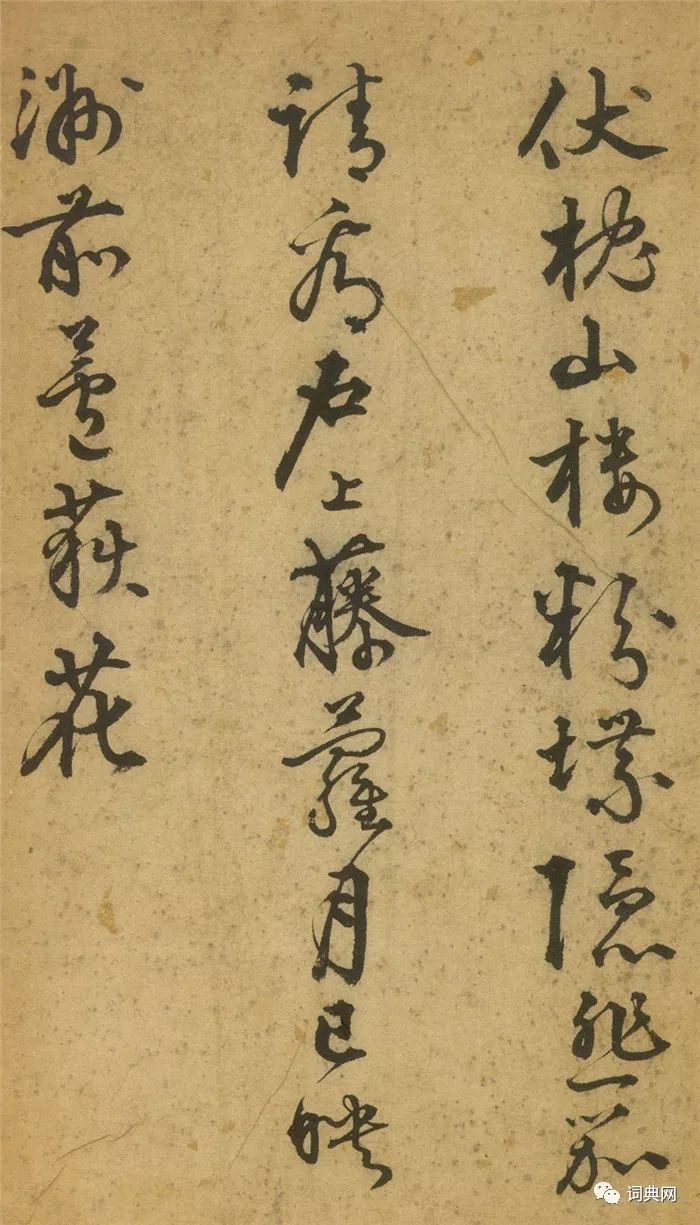 伏枕山楼粉堞隐悲笳
请看石上藤萝月已映
洲前芦荻花
词典网